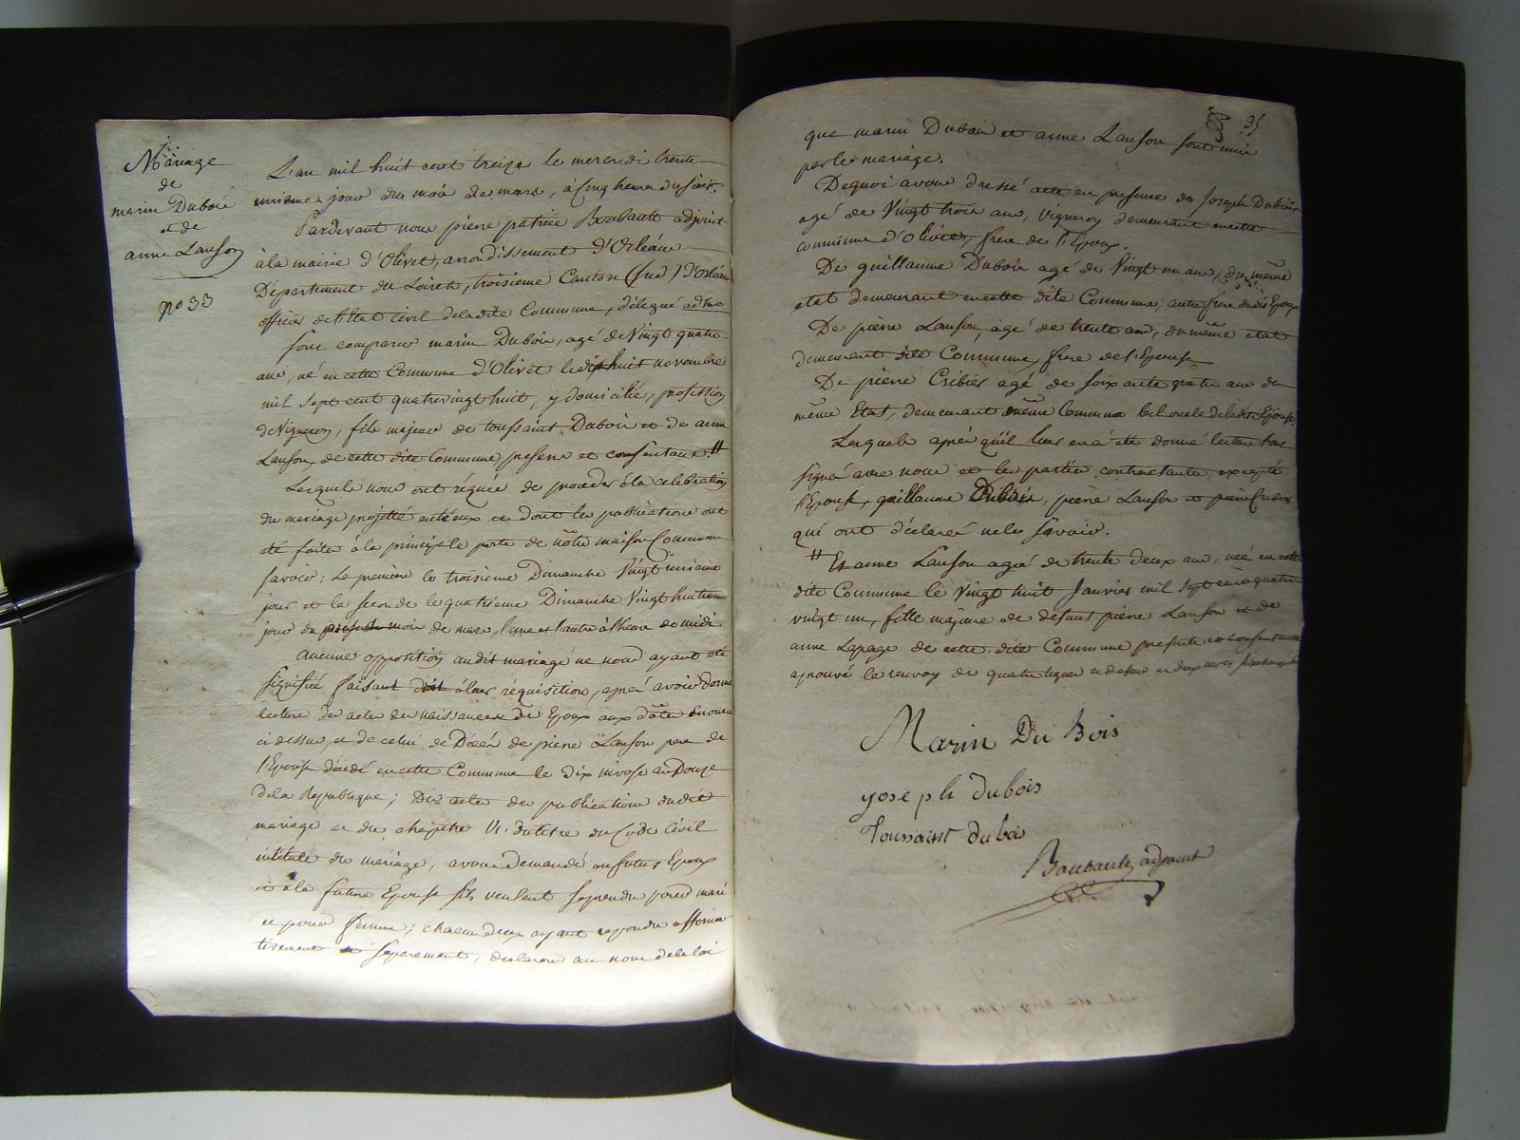 Mariage
de
marin Dubois
et de
anne Lanson
n° 33
L'an mil huit cent treize le mercredi trente
unieme jour du mois de mars, à cinq heures du soir.
Pardevant nous pierre patrice Boubault adjoint
à la mairie d'Olivet, arrondissement d'Orléans
Département du Loiret, troisieme Canton (sud) d'Orléans
officier de l'état civil de la dite Commune, délégué
sont comparus marin Dubois, agé de Vingt quatre
ans, né en cette Commune d'Olivet le dix huit novembre
mil sept cent quatrevingt huit, y domicilié, profession
de Vigneron, fils majeur de toussaint Dubois et de anne
Lanson, de cette dite Commune presens et consentans #
Lesquels nous ont réquis de proceder à la celebration
du mariage projetté entr'eux et dont les publications ont
été faites à la principale porte de nôtre maison Commune
savoir; la premiere le troisieme Dimanche Vingt unieme
jour et la seconde le quatrieme Dimanche Vingt huitieme
jour du mois de mars, l'une et l'autre à l'heure de midi
Aucune opposition audit mariage ne nous ayant été
signifiée faisant droit à leur réquisition, après avoir donné
lecture des actes de naissances des Epoux aux dates
ci dessus, et de celui de Décès de pierre Lanson pere de
l'Epouse décédé en cette Commune le dix nivose an Douze
de la Republique; Des actes de publications dudit
mariage et du chapitre VI. du titre du Code Civil
intitulé du mariage, avons demandé au futur Epoux
et à la future Epouse s'ils veulent se prendre pour mari
et pour femme; chacun d'eux ayant repondu affirma
tivement et séparement, declarons au nom de la loi
35
que marin Dubois et anne Lanson sont unis
par le mariage.
Dequoi avons dressé acte en presence de Joseph Dubois
agé de Vingt trois ans, Vigneron demeurant en cette
commune d'Olivet, frere de l'Epoux.
De guillaume Dubois agé de Vingt un ans, du même
etat demeurant en cette dite Commune, autre frere dudit Epoux
De pierre Lanson, agé de trente ans, du même etat
demeurant dite Commune, frere de l'Epouse
De pierre Cribier agé de soixante quatre ans du
même Etat, demeurant même Commune bel oncle de la dite Epouse
Lesquels après qu'il leur en a été donné lecture ont
signé avec nous et les parties contractantes, excepté
l'Epouse, guillaume Dubois, pierre Lanson et pierre Cribier
qui ont déclaré ne le savoir.
# Et anne Lanson agée de trente deux ans, née en cette
dite Commune le Vingt huit Janvier mil sept cent quatre
vingt un, fille majeure de defunt pierre Lanson et de
anne Lapage de cette dite Commune presente et consentante
aprouvé le renvoy de quatre lignes
Marin Du Bois
yoseph dubois
Toussaint dubois
Boubault, adjoint